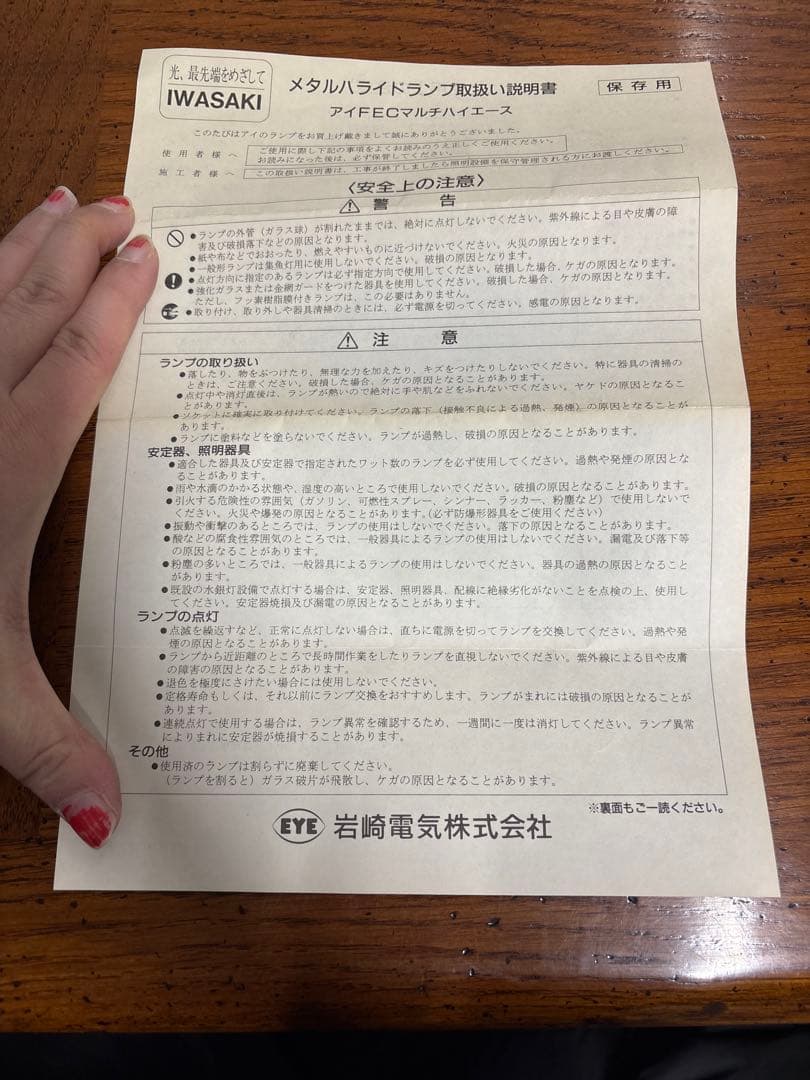 光、最先端をめざして
IWASAKI
メタルハライドランプ取扱い説明書
保存用
アイFECマルチハイエース
このたびはアイのランプをお買上げ戴きまして誠にありがとうございました。
使用者様へ
ご使用に際し下記の事項をよくお読みのうえ正しくご使用ください。
お読みになった後は、必ず保管してください。
施工者様へ
この取扱い説明書は、工事が終了しましたら照明設備を保守管理される方にお渡しください。
〈安全上の注意〉
警告
●ランプの外管（ガラス球）が割れたままでは、絶対に点灯しないでください。紫外線による目や皮膚の障
害及び破損落下などの原因となります。
●紙や布などでおおったり、燃えやすいものに近づけないでください。火災の原因となります。
●一般形ランプは集魚灯用に使用しないでください。破損の原因となります。
●点灯方向に指定のあるランプは必ず指定方向で使用してください。破損した場合、ケガの原因となります。
●強化ガラスまたは金網ガードをつけた器具を使用してください。破損した場合、ケガの原因となります。
ただし、フッ素樹脂膜付きランプは、この必要はありません。
●取り付け、取り外しや器具清掃のときには、必ず電源を切ってください。感電の原因となります。
注意
ランプの取り扱い
●落したり、物をぶつけたり、無理な力を加えたり、キズをつけたりしないでください。特に器具の清掃の
ときは、ご注意ください。破損した場合、ケガの原因となることがあります。
●点灯中や消灯直後は、ランプが熱いので絶対に手や肌などをふれないでください。ヤケドの原因となるこ
とがあります。
●ソケットに確実に取り付けてください。ランプの落下（接触不良による過熱、発煙）の原因となることが
あります。
●ランプに塗料などを塗らないでください。ランプが過熱し、破損の原因となることがあります。
安定器、照明器具
●適合した器具及び安定器で指定されたワット数のランプを必ず使用してください。過熱や発煙の原因とな
ることがあります。
●雨や水滴のかかる状態や、湿度の高いところで使用しないでください。破損の原因となることがあります。
●引火する危険性の雰囲気（ガソリン、可燃性スプレー、シンナー、ラッカー、粉塵など）で使用しないで
ください。火災や爆発の原因となることがあります。（必ず防爆形器具をご使用ください）
●振動や衝撃のあるところでは、ランプの使用はしないでください。落下の原因となることがあります。
●酸などの腐食性雰囲気のところでは、一般器具によるランプの使用はしないでください。漏電及び落下等
の原因となることがあります。
●粉塵の多いところでは、一般器具によるランプの使用はしないでください。器具の過熱の原因となること
があります。
●既設の水銀灯設備で点灯する場合は、安定器、照明器具、配線に絶縁劣化がないことを点検の上、使用し
てください。安定器焼損及び漏電の原因となることがあります。
ランプの点灯
●点滅を繰返すなど、正常に点灯しない場合は、直ちに電源を切ってランプを交換してください。過熱や発
煙の原因となることがあります。
●ランプから近距離のところで長時間作業をしたりランプを直視しないでください。紫外線による目や皮膚
の障害の原因となることがあります。
●退色を極度にさけたい場合には使用しないでください。
●定格寿命もしくは、それ以前にランプ交換をおすすめします。ランプがまれには破損の原因となることが
あります。
●連続点灯で使用する場合は、ランプ異常を確認するため、一週間に一度は消灯してください。ランプ異常
によりまれに安定器が焼損することがあります。
その他
●使用済のランプは割らずに廃棄してください。
（ランプを割ると）ガラス破片が飛散し、ケガの原因となることがあります。
※裏面もご一読ください。
EYE 岩崎電気株式会社